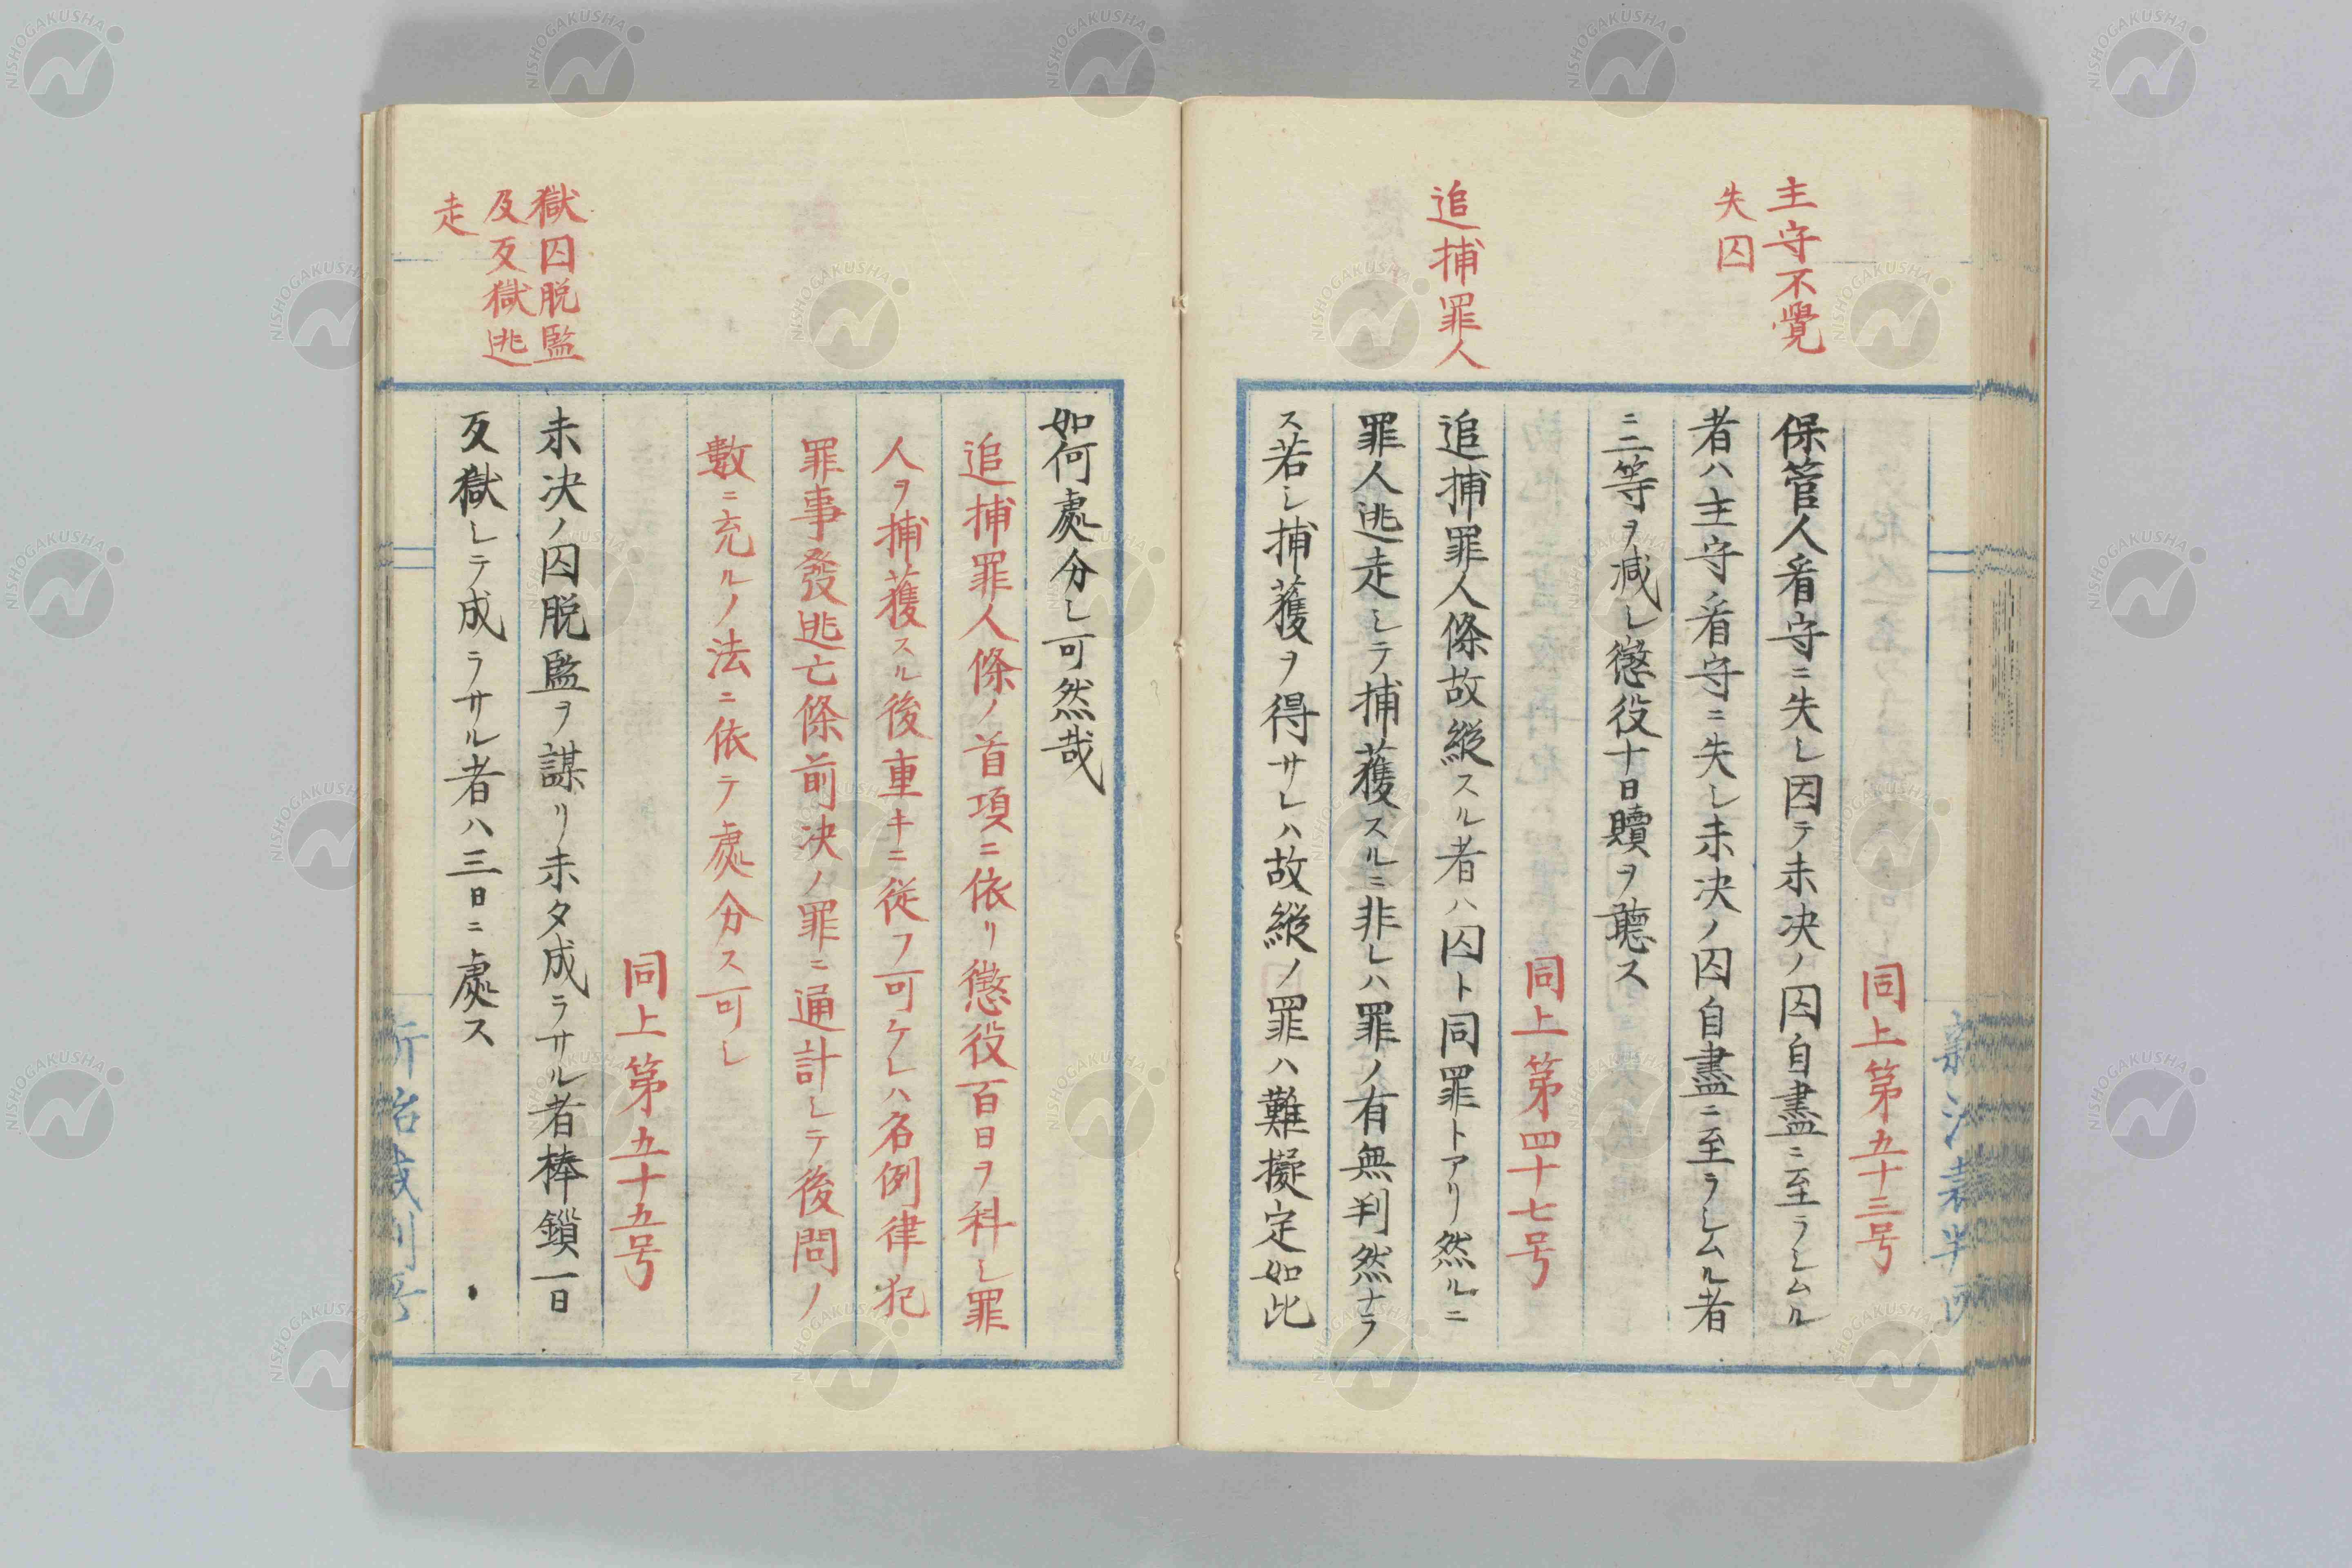 主守不覺
失囚
同上第五十三号
保管人看守ニ失シ因テ未決ノ囚自盡ニ至ラシムル
者ハ主守看守ニ失シ未決ノ囚自盡ニ至ラシムル者
ニ二等ヲ減シ懲役十日贖ヲ聴ス
同上第四十七号
追捕罪人
追捕罪人條故縦スル者ハ囚ト同罪トアリ然ルニ
罪人逃走シテ捕獲スルニ非レハ罪ノ有無判然ナラ
ス若シ捕獲ヲ得サレハ故縦ノ罪ハ難擬定如此
如何處分シ可然哉
追捕罪人條ノ首項ニ依リ懲役百日ヲ科シ罪
人ヲ捕獲スル後重キニ従フ可ケレハ名例律犯
罪事發逃亡條前决ノ罪ニ通計シテ後問ノ
數ニ充ルノ法ニ依テ處分ス可シ
同上第五十五号
獄囚脱監
及反獄逃
走
未决ノ囚脱監ヲ謀リ未タ成ラサル者棒鎖一日
反獄シテ成ラサル者ハ三日ニ處ス
NISHOGAKUSHA